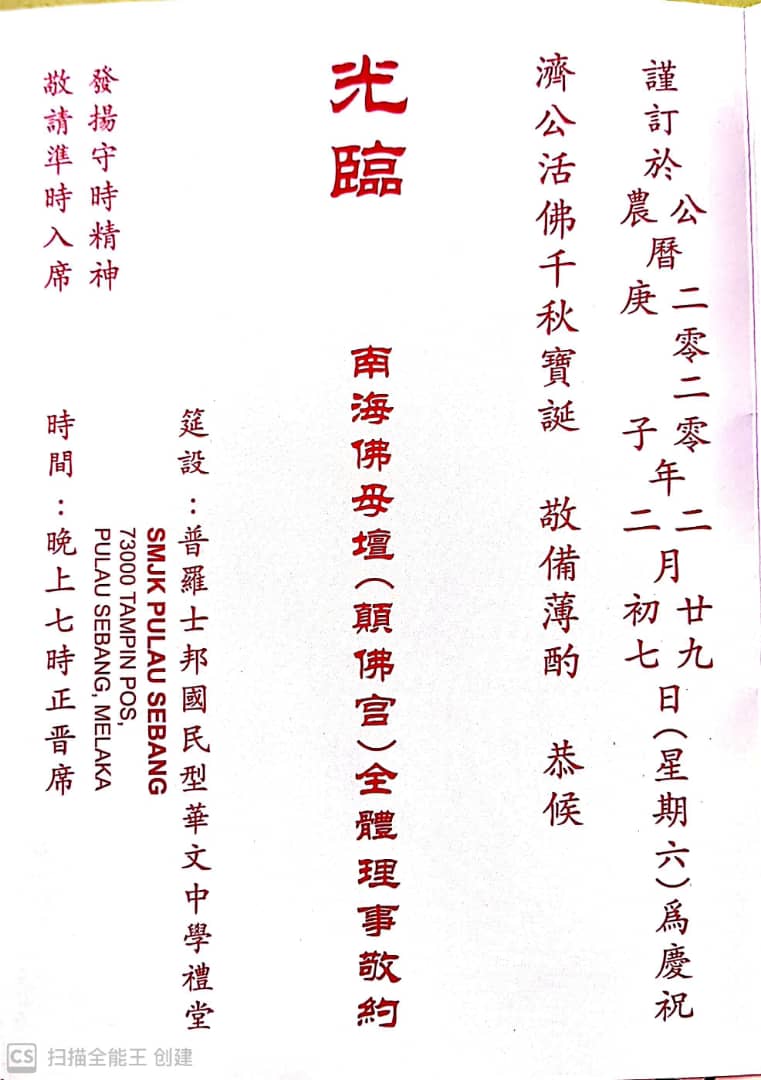 謹訂於公農曆二零二零庚子年二二月廿九初七日(星期六)爲慶祝
濟公活佛千秋寶誕 敬備薄酌 恭候
光臨
南海佛母壇(顛佛宫)全體理事敬約
筵設：普羅士邦國民型華文中學禮堂
SMJK PULAU SEBANG
73000 TAMPIN POS,
PULAU SEBANG, MELAKA
發揚守時精神
敬請準時入席
時間：晚上七時正晋席
CS 扫描全能王 创建